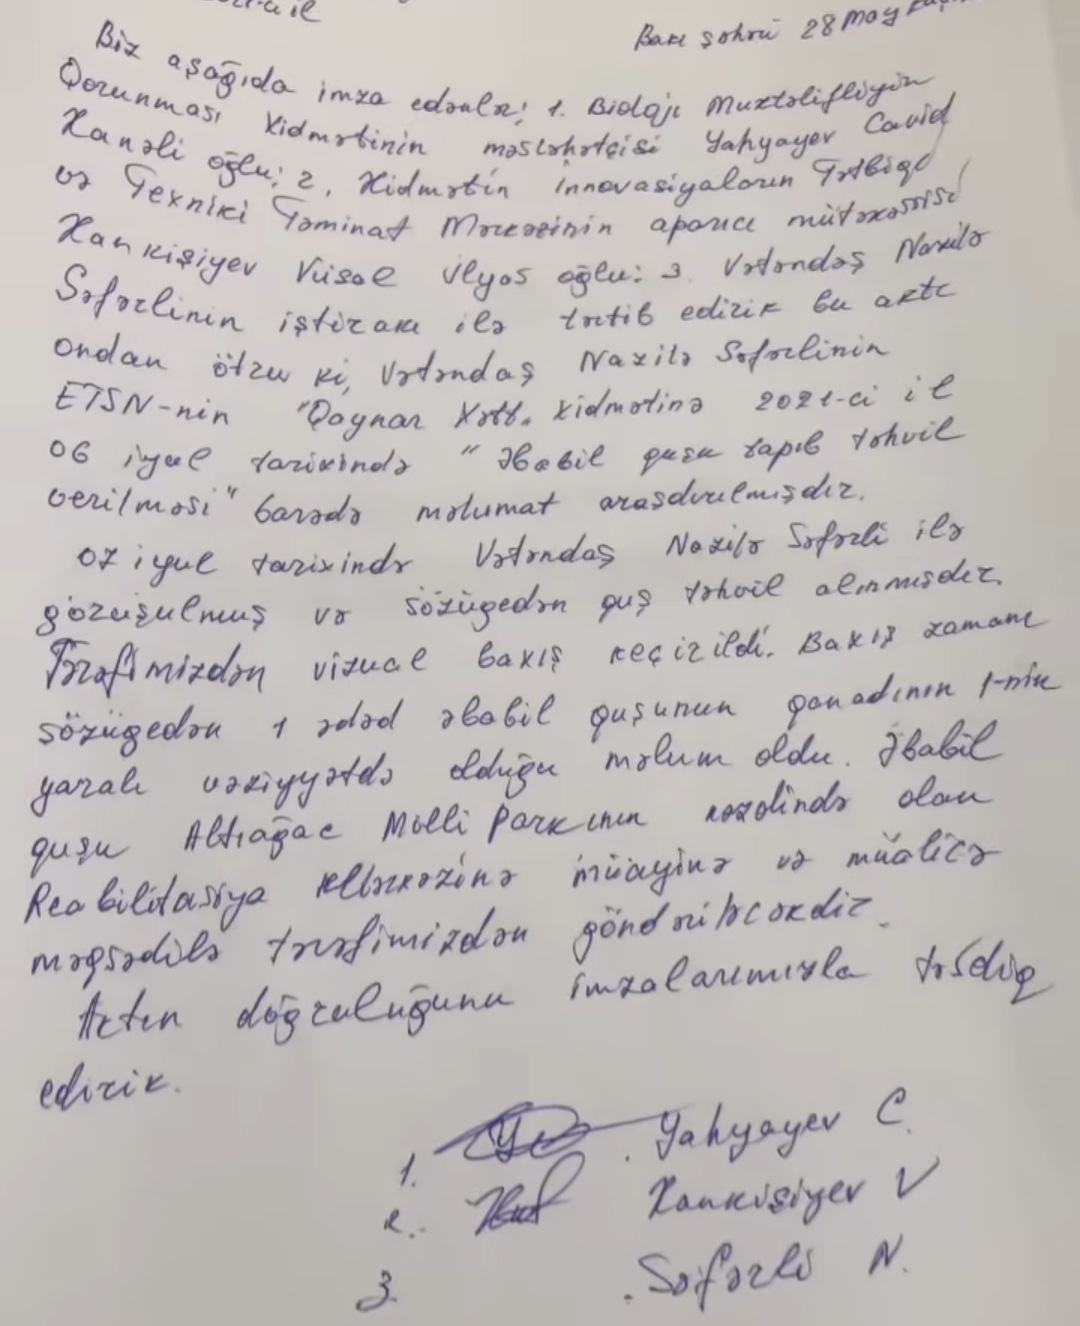 Bakı şəhəri 28 May
Biz aşağıda imza edənlər: 1. Bioloji Müxtəlifliyin
Qorunması Xidmətinin məsləhətçisi Yahyayev Cavid
Xanəli oğlu; 2. Xidmətin İnnovasiyaların Tətbiqi
və Texniki Təminat Mərkəzinin aparıcı mütəxəssisi
Xankişiyev Vüsal İlyas oğlu; 3. Vətəndaş Nazilə
Səfərlinin iştirakı ilə tərtib edirik bu aktı
ondan ötrü ki, Vətəndaş Nazilə Səfərlinin
ETSN-nin "Qaynar Xətt" xidmətinə 2021-ci il
06 iyul tarixində "Əbabil quşu tapıb təhvil
verilməsi" barədə məlumat araşdırılmışdır.
07 iyul tarixində Vətəndaş Nazilə Səfərli ilə
görüşülmüş və sözügedən quş təhvil alınmışdır.
Tərəfimizdən vizual baxış keçirildi. Baxış zamanı
sözügedən 1 ədəd əbabil quşunun qanadının 1-nin
yaralı vəziyyətdə olduğu məlum oldu. Əbabil
quşu Altıağac Milli Parkının nəzdində olan
Reabilitasiya Mərkəzinə müayinə və müalicə
məqsədilə tərəfimizdən göndəriləcəkdir.
Aktın doğruluğunu imzalarımızla təsdiq
edirik.
1. Yahyayev C.
2. Xankişiyev V
3. Səfərli N.